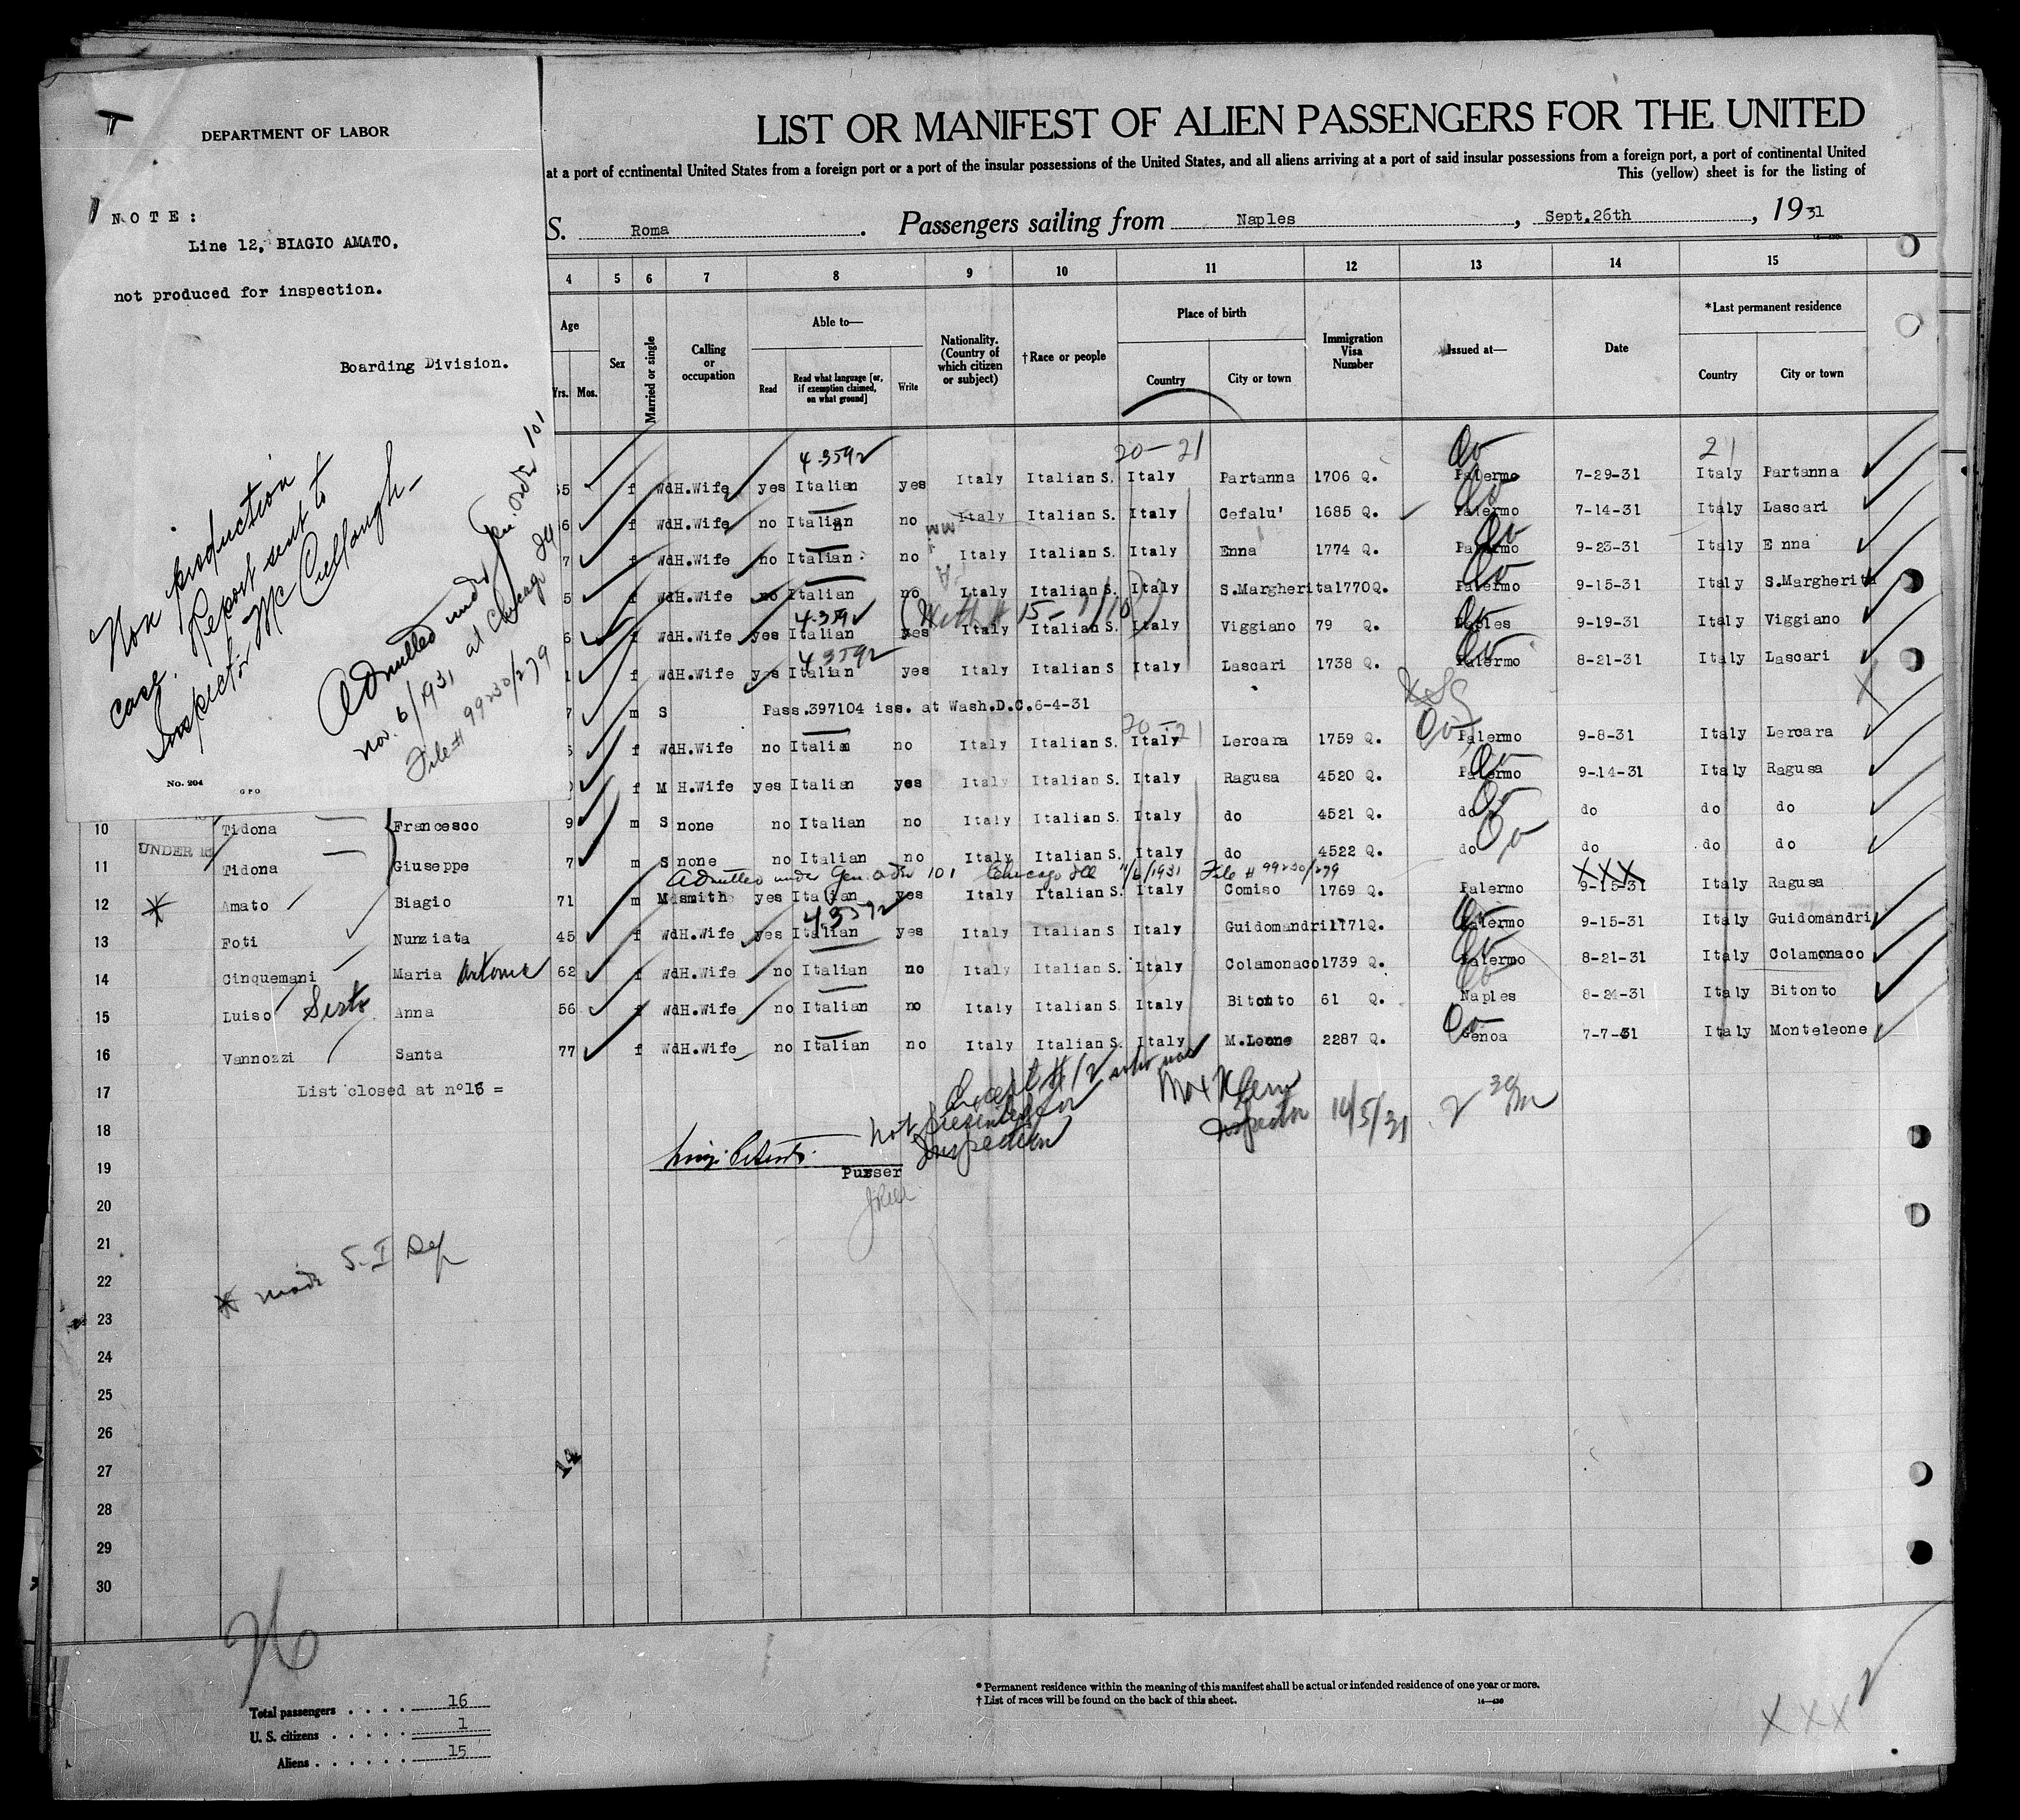 DEPARTMENT OF LABOR
NOTE:
Line 12, BIAGIO AMATO.
not produced for inspection.
Boarding Division.
Non production
case. Report sent to
Inspector McCullough-
Admitted under Gen. Order 101
Nov. 6/1931 at Chicago Ill
File # 99230/279
No. 204
GPO
LIST OR MANIFEST OF ALIEN PASSENGERS FOR THE UNITED
at a port of continental United States from a foreign port or a port of the insular possessions of the United States, and all aliens arriving at a port of said insular possessions from a foreign port, a port of continental United
This (yellow) sheet is for the listing of
S. Roma. Passengers sailing from Naples, Sept.26th, 1931
4 5 6 7 8 9 10 11 12 13 14 15
Age Yrs. Mos.
Sex
Married or single
Calling or occupation
Able to—
Read
Read what language [or, if exemption claimed, on what ground]
Write
Nationality. (Country of which citizen or subject)
†Race or people
Place of birth
Country
City or town
Immigration Visa Number
Issued at—
Date
*Last permanent residence
Country
City or town
4-3592 20-21 21
5 f Wd H.Wife yes Italian yes Italy Italian S. Italy Partanna 1706 Q. Palermo 7-29-31 Italy Partanna
6 f Wd H.Wife no Italian no Italy Italian S. Italy Cefalu' 1685 Q. Palermo 7-14-31 Italy Lascari
7 f Wd H.Wife no Italian no Italy Italian S. Italy Enna 1774 Q. Palermo 9-23-31 Italy Enna
5 f Wd H.Wife no Italian no Italy Italian S. Italy S.Margherita 1770Q. Palermo 9-15-31 Italy S.Margherita
4-3592
6 f Wd H.Wife yes Italian yes Italy Italian S. Italy Viggiano 79 Q. Naples 9-19-31 Italy Viggiano
4-3592
1 f Wd H.Wife yes Italian yes Italy Italian S. Italy Lascari 1738 Q. Palermo 8-21-31 Italy Lascari
7 m S Pass.397104 iss. at Wash.D.C.6-4-31
20-21
f Wd H.Wife no Italian no Italy Italian S. Italy Lercara 1759 Q. Palermo 9-8-31 Italy Lercara
f M H.Wife yes Italian yes Italy Italian S. Italy Ragusa 4520 Q. Palermo 9-14-31 Italy Ragusa
10 Tidona Francesco 9 m S none no Italian no Italy Italian S. Italy do 4521 Q. do do do do
UNDER 16
11 Tidona Giuseppe 7 m S none no Italian no Italy Italian S. Italy do 4522 Q. do do do do
Admitted under Gen order 101 Chicago Ill 11/6/1931 File # 99230/279 XXX
12 Amato Biagio 71 m M smith yes Italian yes Italy Italian S. Italy Comiso 1769 Q. Palermo 9-15-31 Italy Ragusa
4-3592
13 Foti Nunziata 45 f Wd H.Wife yes Italian yes Italy Italian S. Italy Guidomandri 1771Q. Palermo 9-15-31 Italy Guidomandri
14 Cinquemani Maria Antonia 62 f Wd H.Wife no Italian no Italy Italian S. Italy Colamonaco 1739 Q. Palermo 8-21-31 Italy Colamonaco
15 Luiso Sisto Anna 56 f Wd H.Wife no Italian no Italy Italian S. Italy Bitonto 61 Q. Naples 8-24-31 Italy Bitonto
16 Vannozzi Santa 77 f Wd H.Wife no Italian no Italy Italian S. Italy M.Leone 2287 Q. Genoa 7-7-31 Italy Monteleone
17 List closed at n°16 =
Except # 12 who was
not presented for
Inspection
Inspector 10/5/31
18
19
Purser
20
21
22
* made S.I Def
23
24
25
26
27
14
28
29
30
Total passengers . . . . 16
U. S. citizens . . . . . 1
Aliens . . . . . . 15
* Permanent residence within the meaning of this manifest shall be actual or intended residence of one year or more.
† List of races will be found on the back of this sheet.
XXX